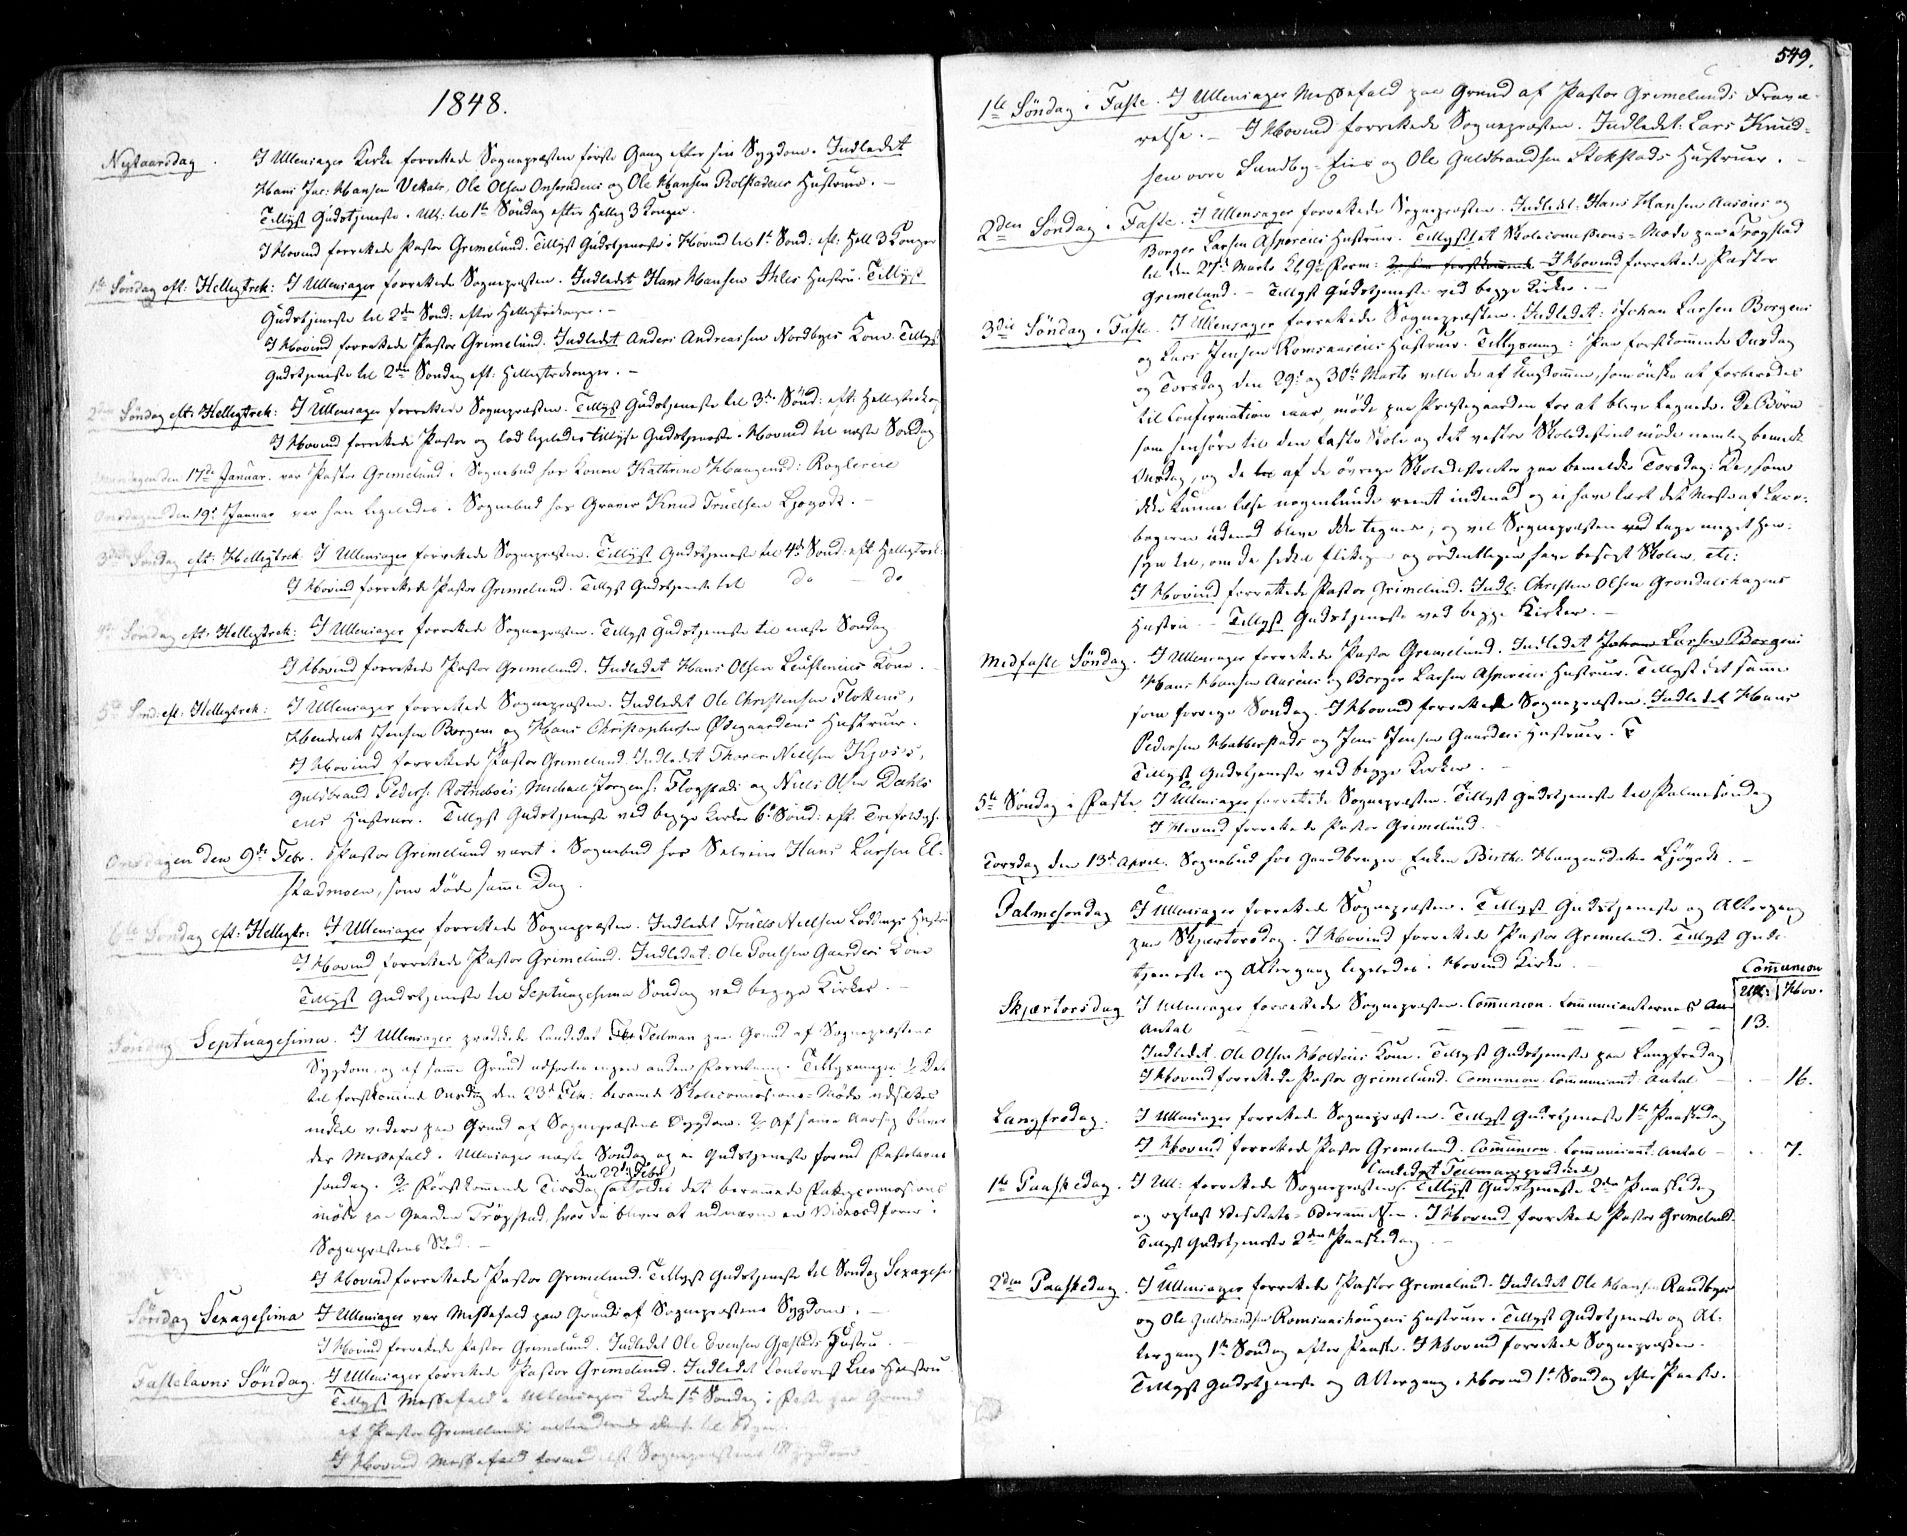 1848.
Nytaarsdag. I Ullensager Kirke forrettede Sognepræsten første Gang efter sin Sygdom. Indledet
Hans Jac: Hansen Olsen og Ole Hansen Hustruer. —
Tillyst Gudstjeneste i Ull: til 1ste Søndag efter Hellig 3 Konger.
I Hovind forrettede Pastor Grimelund. Tillyst Gudstjeneste i Hovind til 1ste Sønd: eft: Hell 3 Konger
1ste Søndag eft: Helligtrek: I Ullensager forrettede Sognepræsten. Indledet Hans Hansen Hustru. Tillyst
Gudstjeneste til 2den Sønd: efter Helligtrekonger. —
I Hovind forrettede Pastor Grimelund. Indledet Anders Andreassen Nordbyes Kone. Tillyst
Gudstjeneste til 2den Søndag eft: Helligtrekonger. —
2den Søndag eft: Helligtrek: I Ullensager forrettede Sognepræsten. Tillyst Gudstjeneste til 3die Sønd: eft: Helligtrekong
I Hovind forrettede Pastor og lod ligeledes tillyse Gudstjeneste i Hovind til næste Søndag
Mandagen den 17de Januar. var Pastor Grimelund i Sognebud hos Konen Kathrine Haagensd:
Onsdagen den 19de Januar var han ligeledes i Sognebud hos Graver Knud Truelsen Ljøgodt. —
3die Søndag eft: Helligtrek. I Ullensager forrettede Sognepræsten. Tillyst Gudstjeneste til 4de Sønd: eft Helligtrek:
I Hovind forrettede Pastor Grimelund. Tillyst Gudstjeneste til do — do
4de Søndag eft: Helligtrek: I Ullensager forrettede Sognepræsten. Tillyst Gudstjeneste til næste Søndag
I Hovind forrettede Pastor Grimelund. Indledet Hans Olsen Kone. —
5te Sønd: eft. Helligtrek: I Ullensager forrettede Sognepræsten. Indledet Ole Christensen
Hendrik Jensen Borgen og Hans Christophersen Ødegaardens Hustruer.
I Hovind forrettede Pastor Grimelund. Indledet Nielsen
Guldbrand Peders: Michael Jørgens: Flogstads og Niels Olsen Dahls
Hustruer. Tillyst Gudstjeneste ved begge Kirker 6te Sønd: eft.
Onsdagen den 9de Febr. Pastor Grimelund været i Sognebud hos Hans Larsen El-
stadmoen, som døde samme Dag.
6te Søndag eft: Helligtr: I Ullensager forrettede Sognepræsten. Indledet Truels Nielsen Hustru
I Hovind forrettede Pastor Grimelund. Indledet: Ole Poulsen Gaarders Kone
Tillyst Gudstjeneste til Septuagesima Søndag ved begge Kirker. —
Søndag Septuagesima. I Ullensager prædikede Candidat Tellman paa Grund af Sognepræstens
Sygdom, og af samme Grund udførtes ingen anden Forretning. Tillysninger: 1/ Det
til førstkommende Onsdag den 23de Febr: berammede Skolecommissions-Møde udsættes
indtil videre paa Grund af Sognepræstens Sygdom. 2/ Af samme Aarsag bliver
der Messefald i Ullensager næste Søndag og ei Gudstjeneste førend Fastelavns
søndag. 3/ Førstkommende Tirsdag (den 22de Febr.) afholdes det berammede
møde paa Gaarden Trøgstad, hvor da bliver at udnævne en i
Sognepræstens Sted. —
I Hovind forrettede Pastor Grimelund. Tillyst Gudstjeneste til Søndag Sexagesi
Søndag Sexagesima I Ullensager var Messefald paa Grund af Sognepræstens Sygdom. —
I Hovind forrettede Pastor Grimelund. Indledet Ole Evensen Gjestads Hustru.
Fastelavns Søndag. I Ullensager forrettede Pastor Grimelund. Indledet Hustru
Tillyst Messefald i Ullensagers Kirke 1ste Søndag i Faste paa Grund
af Pastor Grimelunds
I Hovind Messefald formedelst Sognepræstens Sygdom
549.
1ste Søndag i Faste. I Ullensager Messefald paa Grund af Pastor Grimelunds Fravæ-
relse. — I Hovind forrettede Sognepræsten. Indledet: Lars Knud-
sen Sundby-Eies og Ole Guldbrandsen Stokstads Hustruer. —
2den Søndag i Faste. I Ullensager forrettede Sognepræsten. Indledet: Hans Hansen og
Borger Larsen Hustruer. Tillyst et Skolecommissions-Møde paa Trøgstad
til den 27de Marts Kl. 9 Form: I Hovind forrettede Pastor
Grimelund. — Tillyst Gudstjeneste ved begge Kirker. —
3die Søndag i Faste. I Ullensager forrettede Sognepræsten. Indledet: Johan Larsen Borgens
og Lars Jensen Hustruer. Tillysning: Paa førstkommende Onsdag
og Torsdag den 29de og 30te Marts ville de af Ungdommen, som ønske at forberedes
til Confirmation iaar, møde paa Præstegaarden for at blive tegnede. De Børn
som henhøre til den faste Skole og det vestre Skoledistrict møde nemlig bemeldte
Onsdag, og de af de øvrige Skoledistrikter paa bemeldte Torsdag. De, som
ikke kunne læse nogenlunde reent indenad og ei have lært det Meste af Lære-
bøgerne udenad blive ikke tegnede; og vil Sognepræsten tage meget Hen-
syn til, om de have flittigen og ordentligen have besøgt Skolen, etc:
I Hovind forrettede Pastor Grimelund. Indl: Christen Olsen Grøndalshagens
Hustru. — Tillyst Gudstjeneste ved begge Kirker. —
Midfaste Søndag. I Ullensager forrettede Pastor Grimelund. Indledet Johan Larsen Borgens
Hans Hansen og Borger Larsen Hustruer. Tillyst det samme
som forrige Søndag. I Hovind forrettede Sognepræsten. Indledet Hans
Pedersen og Jens Jensen Gaarders Hustruer.
Tillyst Gudstjeneste ved begge Kirker. —
5te Søndag i Faste I Ullensager forrettede Sognepræsten. Tillyst Gudstjeneste til Palmesøndag
I Hovind forrettede Pastor Grimelund.
Torsdag den 13de April. Sognebud hos Gaardbruger Enken Birthe Haagensdatter Ljøgodt. —
Palmesøndag I Ullensager forrettede Sognepræsten. Tillyst Gudstjeneste og Altergang
paa Skjærtorsdag. I Hovind forrettede Pastor Grimelund. Tillyst Guds-
tjeneste og Altergang ligeledes i Hovind Kirke. —
Communion
Ull: Hov.
Skjærtorsdag I Ullensager forrettede Sognepræsten. Communion. Communicanternes An
Antal — — — — — — 13.
Indledet: Ole Olsen Kone. Tillyst Gudstjeneste paa Langfredag
I Hovind forrettede Pastor Grimelund. Communion. Communicant: Antal — 16.
Langfredag. I Ullensager forrettede Sognepræsten. Tillyst Gudstjeneste 1ste Paaskedag
I Hovind forrettede Pastor Grimelund. Communion. Communicant: Antal — 7.
1ste Paaskedag. I Ull: forrettede Sognepræsten (Candidat Tellman prædikede). Tillyst Gudstjeneste 2den Paaskedag
og oplæst Visitats-Berammelsen. I Hovind forrettede Pastor Grimelund.
Tillyst Gudstjeneste 2den Paaskedag. —
2den Paaskedag. I Ullensager forrettede Pastor Grimelund. Indledet Ole Hansen Randbyes
og Ole Guldbrandsen Hustruer. Tillyst Gudstjeneste og Al-
tergang 1ste Søndag efter Paaske. I Hovind forrettede Sognepræsten.
Tillyst Gudstjeneste og Altergang i Hovind 1ste Søndag efter Paaske.